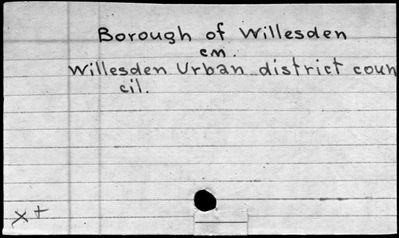 Borough of Willesden
см.
Willesden Urban district coun
cil.
x+